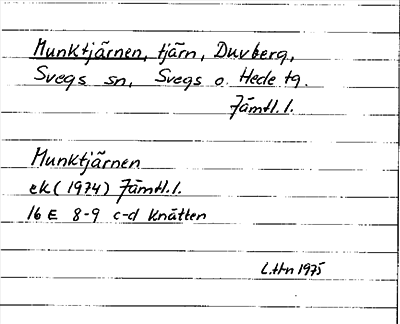 Munktjärnen, tjärn, Duvberg,
Svegs sn, Svegs o. Hede tg.
Jämtl. l.
Munktjärnen
ek (1974) Jämtl. l.
16 E 8-9 c-d Knätten
L.Hn 1975